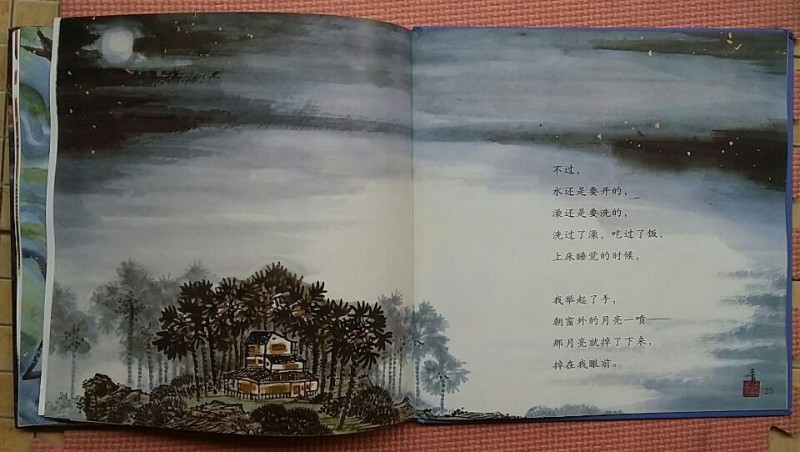 不过，
水还是要开的，
澡还是要洗的，
洗过了澡，吃过了饭，
上床睡觉的时候，
我举起了手，
朝窗外的月亮一喷——
那月亮就掉了下来，
掉在我眼前。
25